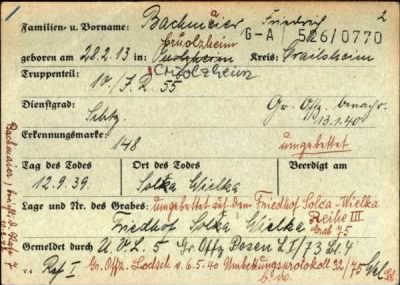 2
Familien- u. Vorname: Bachmeier Friedrich
G-A 526/0770
Cruolzheim
geboren am 28.2.13 in Kreis: Crailsheim
Truppenteil: 10./J.R. 55
Dienstgrad: Schtz. Gr. Offz. benachr.
13.1.40
Erkennungsmarke: 148 umgebettet
Tag des Todes Ort des Todes Beerdigt am
12.9.39. Solka Wielka
Lage und Nr. des Grabes: umgebettet auf dem Friedhof Solca-Wielka
Reihe III
Friedhof Solka Wielka Grab 75
Gemeldet durch Gr. Offz. Posen L I/73 Bl 4
Ref I Gr. Offz. Lodsch v. 6.5.40 Umbettungsprotokoll 32/75